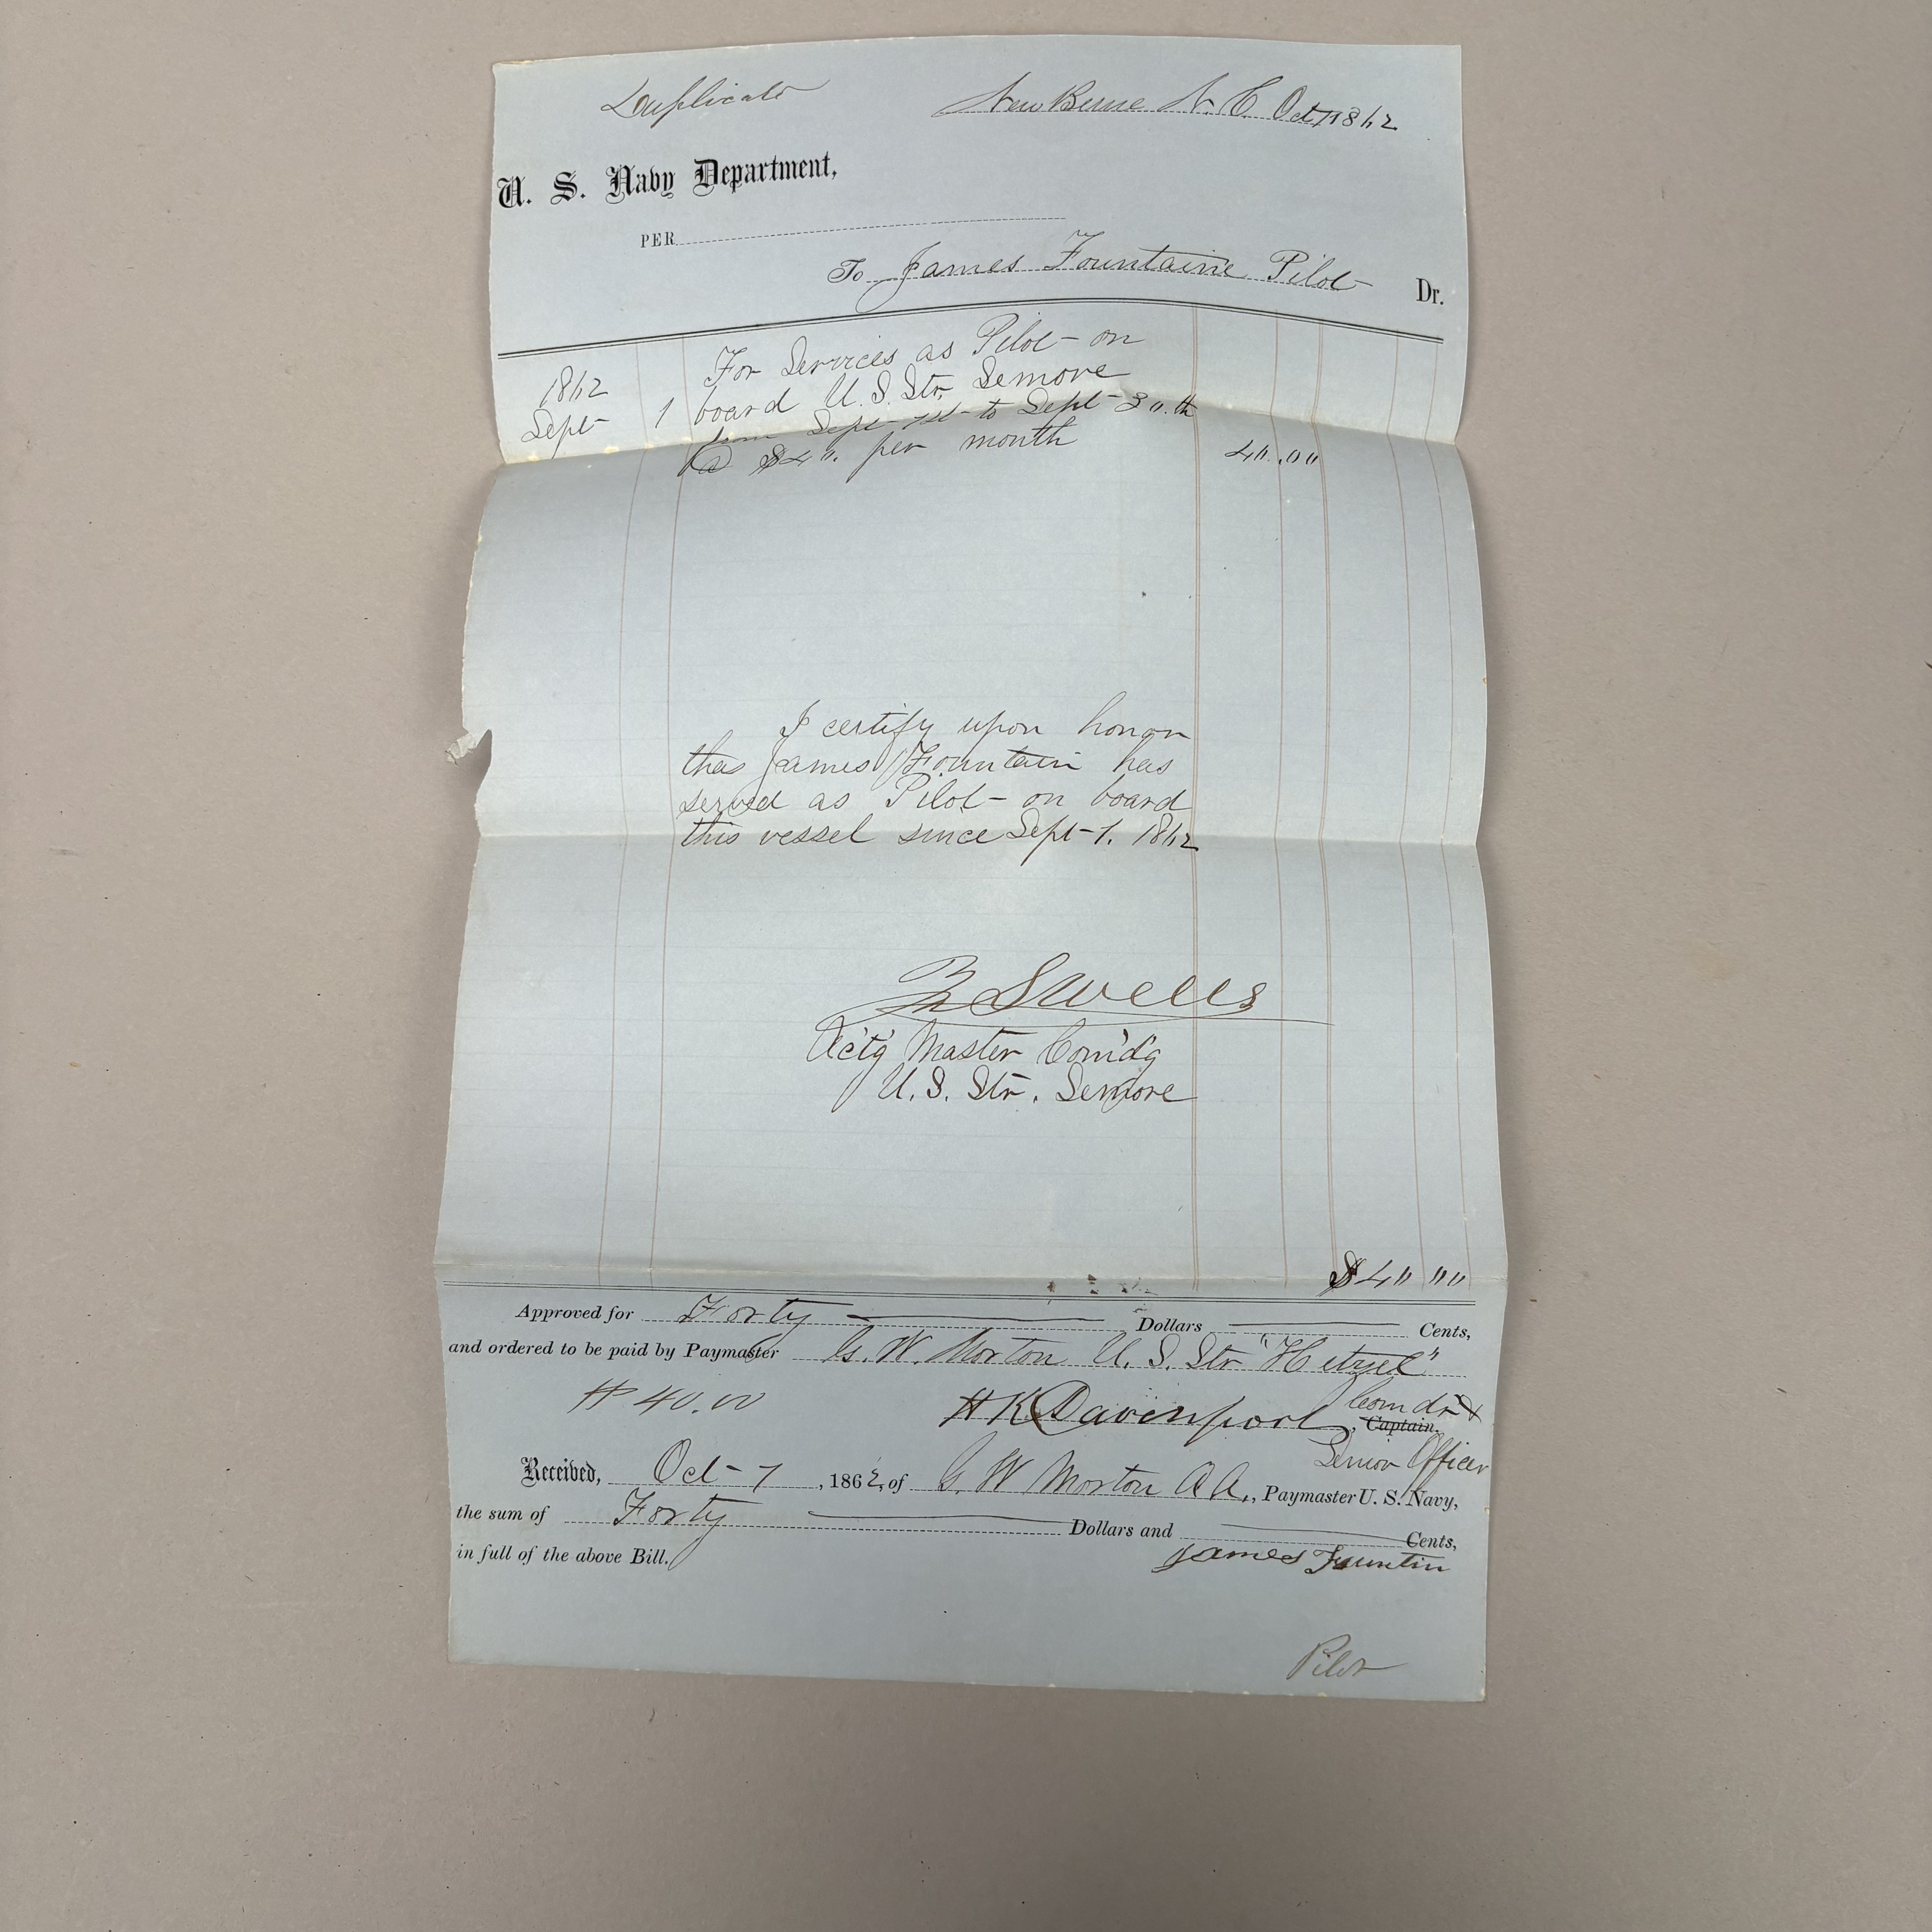 Duplicate
New Berne N. C. Oct 7 1862
U. S. Navy Department,
PER
To James Fountaine Pilot Dr.
For Services as Pilot on
1862
Sept 1 board U. S. Str. Semore
from Sept 1st to Sept 30th
@ $40. per month 40.00
I certify upon honor
that James Fountain has
served as Pilot on board
this vessel since Sept 1. 1862
S Wells
Act'g Master Com'd'g
U. S. Str. Semore
$40 00
Approved for Forty Dollars Cents,
and ordered to be paid by Paymaster G. W. Morton U. S. Str "Hetzel"
$40.00
H K Davenport, Captain. Comdr &
Senior Officer
Received, Oct 7, 1862, of G. W Morton A A., Paymaster U. S. Navy,
the sum of Forty Dollars and Cents,
in full of the above Bill.
James Fountin
Pilot